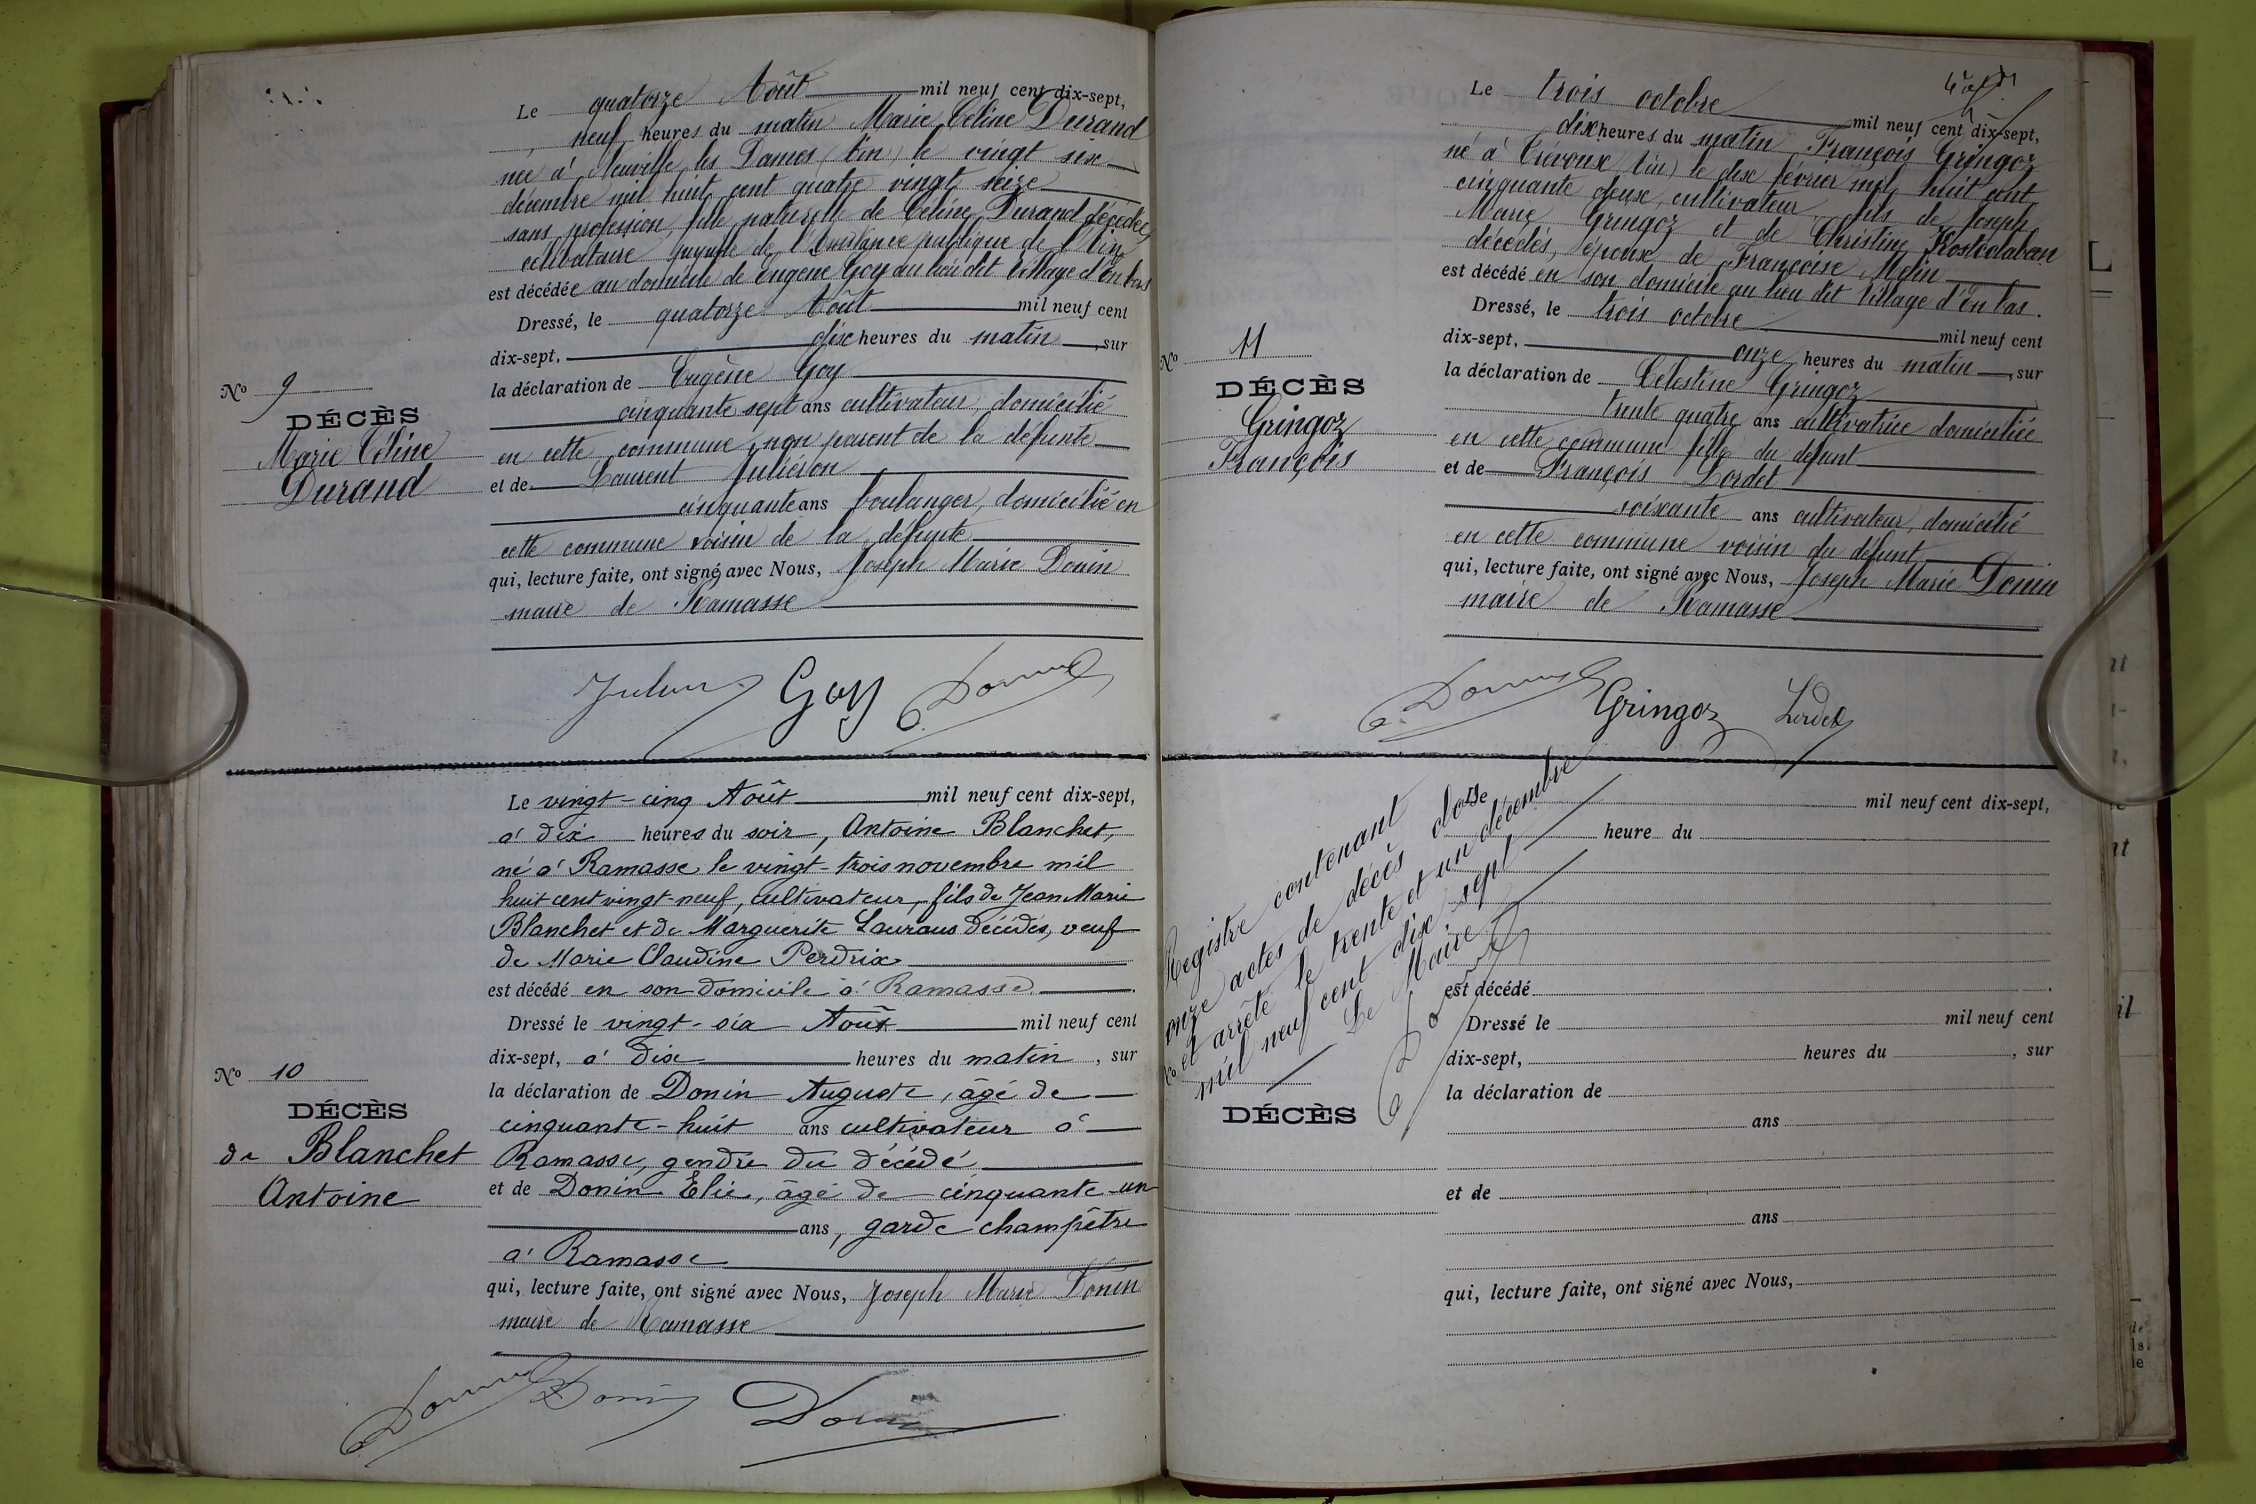 Le quatorze Août mil neuf cent dix-sept,
neuf heures du matin Marie Céline Durand
née à Neuville les Dames (Ain) le vingt six
décembre mil huit cent quatre vingt seize
sans profession, fille naturelle de Céline Durand décédée,
célibataire pupille de l'Assistance publique de l'Ain
est décédée au domicile de Eugène Goy au lieu dit Village d'En bas
Dressé, le quatorze Août mil neuf cent
dix-sept, dix heures du matin, sur
la déclaration de Eugène Goy
cinquante sept ans cultivateur, domicilié
en cette commune, non parent de la défunte
et de Laurent Juliéron
cinquante ans boulanger, domicilié en
cette commune voisin de la défunte
qui, lecture faite, ont signé avec Nous, Joseph Marie Donin
maire de Ramasse
No 9
DÉCÈS
Marie Céline
Durand
Goy Donin
Le vingt-cinq Août mil neuf cent dix-sept,
à dix heures du soir, Antoine Blanchet,
né à Ramasse le vingt-trois novembre mil
huit cent vingt-neuf, cultivateur, fils de Jean Marie
Blanchet et de Marguerite Laurans décédés, veuf
de Marie Claudine Perdrix
est décédé en son domicile à Ramasse.
Dressé le vingt-six Août mil neuf cent
dix-sept, à dix heures du matin, sur
la déclaration de Donin Auguste, âgé de
cinquante-huit ans cultivateur à
Ramasse, gendre du décédé
et de Donin Elie, âgé de cinquante-un
ans, garde champêtre
à Ramasse
qui, lecture faite, ont signé avec Nous, Joseph Marie Donin
maire de Ramasse
No 10
DÉCÈS
de Blanchet
Antoine
Donin Donin Donin
Le trois octobre mil neuf cent dix-sept,
dix heures du matin François Gringoz
né à Trévoux (Ain) le dix février mil huit cent
cinquante deux, cultivateur, fils de Joseph
Marie Gringoz et de Christine Kostolaban
décédés, époux de Françoise Melin
est décédé en son domicile au lieu dit Village d'En bas.
Dressé, le trois octobre mil neuf cent
dix-sept, onze heures du matin, sur
la déclaration de Célestine Gringoz
trente quatre ans cultivatrice domiciliée
en cette commune fille du défunt
et de François Lordet
soixante ans cultivateur, domicilié
en cette commune voisin du défunt
qui, lecture faite, ont signé avec Nous, Joseph Marie Donin
maire de Ramasse
No 11
DÉCÈS
Gringoz
François
Donin Gringoz Lordet
Registre contenant
onze actes de décès clos
et arrêté le trente et un décembre
mil neuf cent dix sept
Le Maire
Donin
mil neuf cent dix-sept,
heure du
est décédé
Dressé le mil neuf cent
dix-sept, heures du, sur
la déclaration de
ans
et de
ans
qui, lecture faite, ont signé avec Nous,
No
DÉCÈS